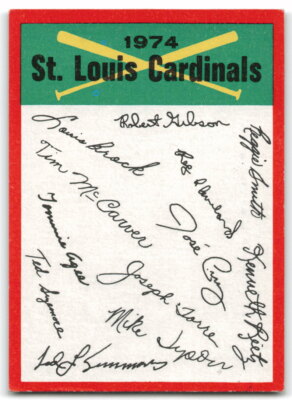 1974
St. Louis Cardinals
Robert Gibson
Louis Brock
Reggie Smith
Tim McCarver
José Cruz
Tommie Agee
Ted Sizemore
Kenneth Reitz
Joseph Torre
Mike Tyson
Ted L Simmons